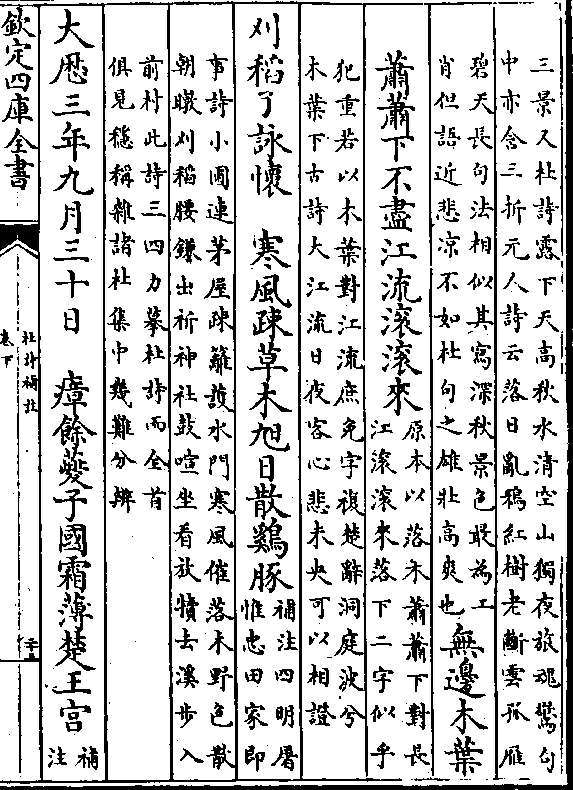 三景又杜詩露下天高秋水清空山獨夜旅魂驚句
中亦含三折元人詩云落日亂鴉紅樹老斷雲孤雁
碧天長句法相似其寫深秋景色最為工
肖但語近悲凉不如杜句之雄壯高爽也
無邊木葉
蕭蕭下不盡江流滚滚來
原本以落木蕭蕭下對長
江滚滚來落下二字似乎
犯重若以木葉對江流庶免字複楚辭洞庭波兮
木葉下古詩大江流日夜客心悲未央可以相證
刈稻了詠懷 寒風疎草木旭日散鷄豚
補注四明屠
惟忠田家即
事詩小圃連茅屋疎籬護水門寒風催落木野色散
朝曦刈稻腰鎌出祈神社鼓喧坐看放犢去溪步入
前村此詩三四力摹杜詩而全首
俱見穩稱雜諸杜集中幾難分辨
大厯三年九月三十日 瘴餘夔子國霜薄楚王宫
補
注
欽定四庫全書
杜詩補註
卷下